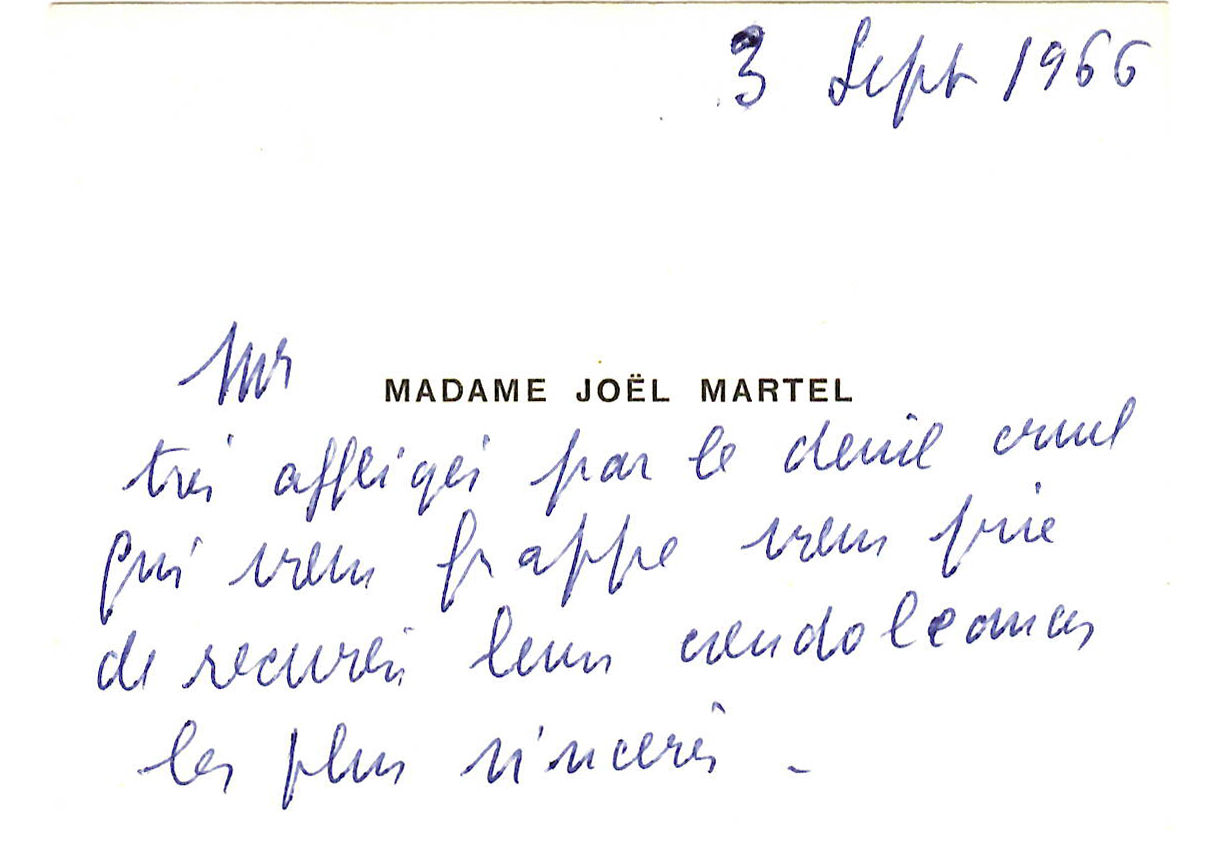 3 Sept 1966
Mr MADAME JOËL MARTEL
très affligés par le deuil cruel
qui vous frappe vous prie
de recevoir leurs condoléances
les plus sincères -